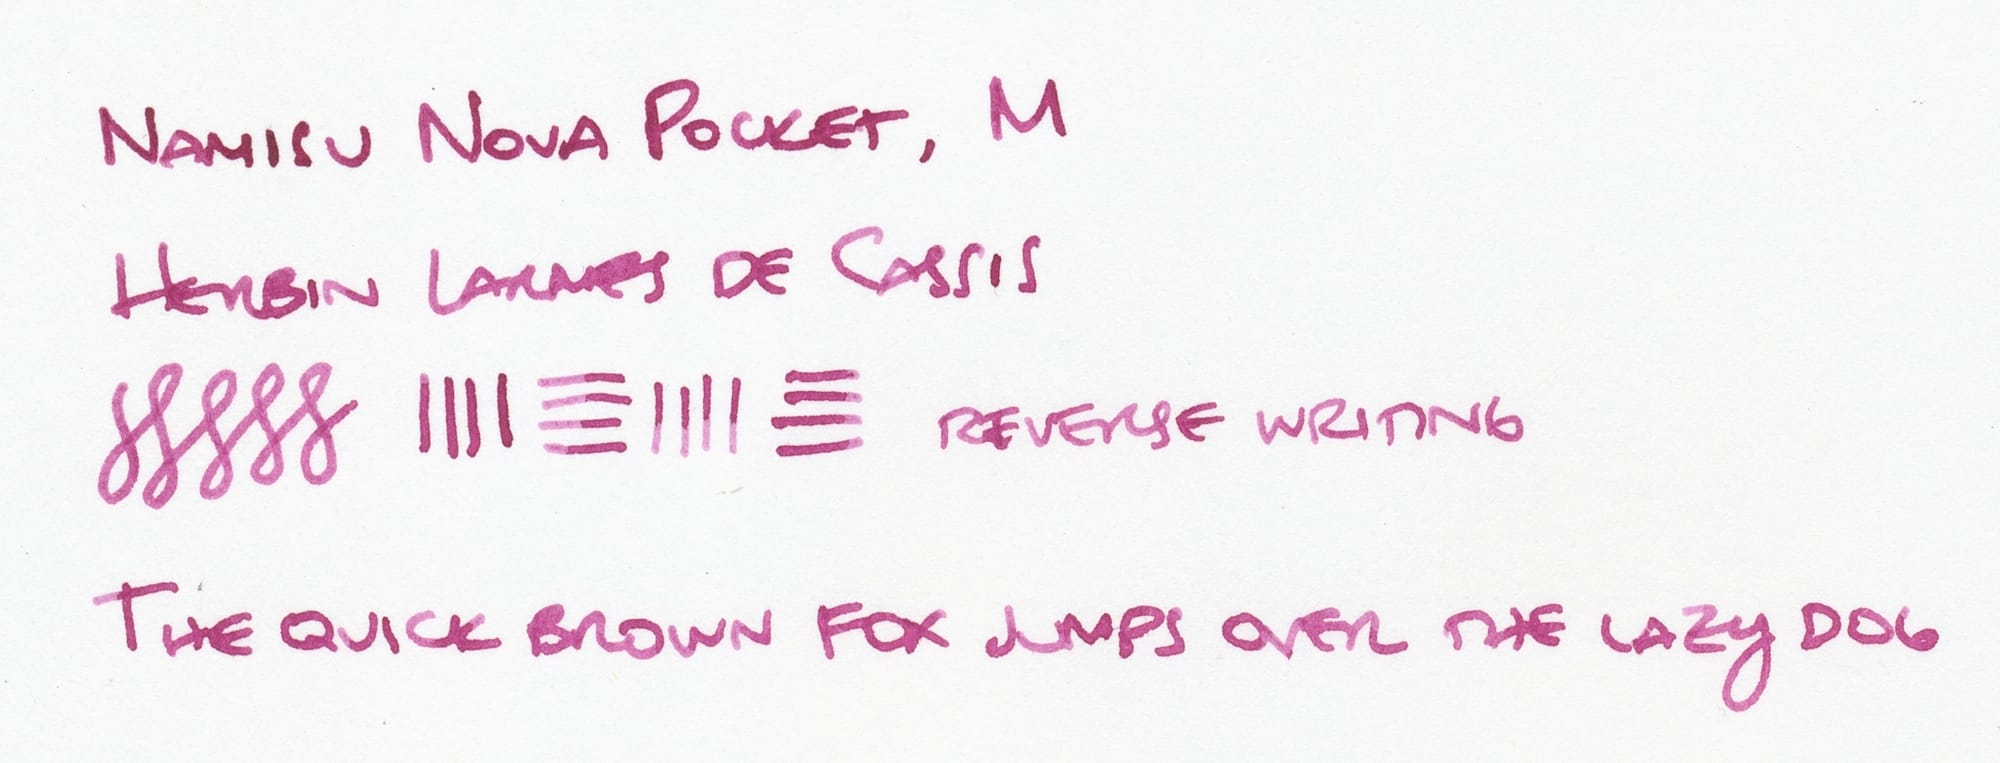 Namisu Nova Pocket, M
Herbin Larmes de Cassis
reverse writing
The quick brown fox jumps over the lazy dog